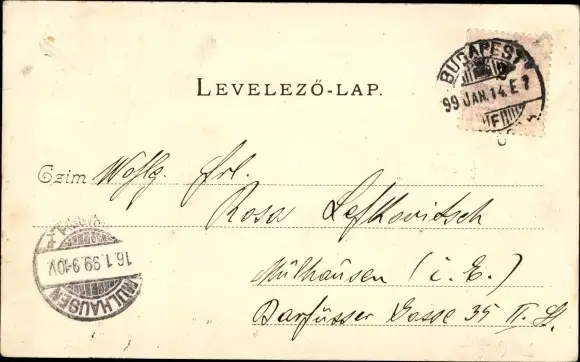 BUDAPEST
99 JAN. 14. E 7
LEVELEZŐ-LAP.
Czim Wohlg. Frl.
Rosa Lefkovitsch
Mülhausen (i. E.)
Barfüsser Gasse 35 II. St.
MÜLHAUSEN
16.1.99.9-10V.